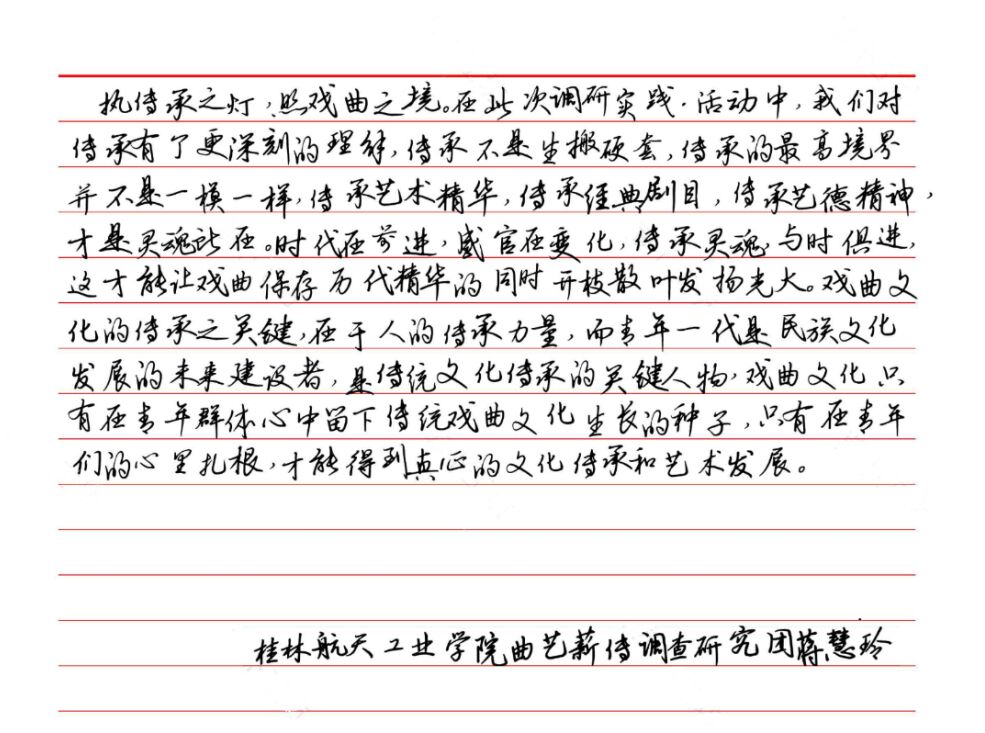 执传承之灯，照戏曲之境。在此次调研实践·活动中，我们对
传承有了更深刻的理解，传承不是生搬硬套，传承的最高境界
并不是一模一样，传承艺术精华，传承经典剧目，传承艺德精神，
才是灵魂所在。时代在前进，感官在变化，传承灵魂，与时俱进，
这才能让戏曲保存历代精华的同时开枝散叶发扬光大。戏曲文
化的传承之关键，在于人的传承力量，而青年一代是民族文化
发展的未来建设者，是传统文化传承的关键人物，戏曲文化只
有在青年群体心中留下传统戏曲文化生长的种子，只有在青年
们的心里扎根，才能得到真正的文化传承和艺术发展。
桂林航天工业学院曲艺薪传调查研究团蒋慧玲